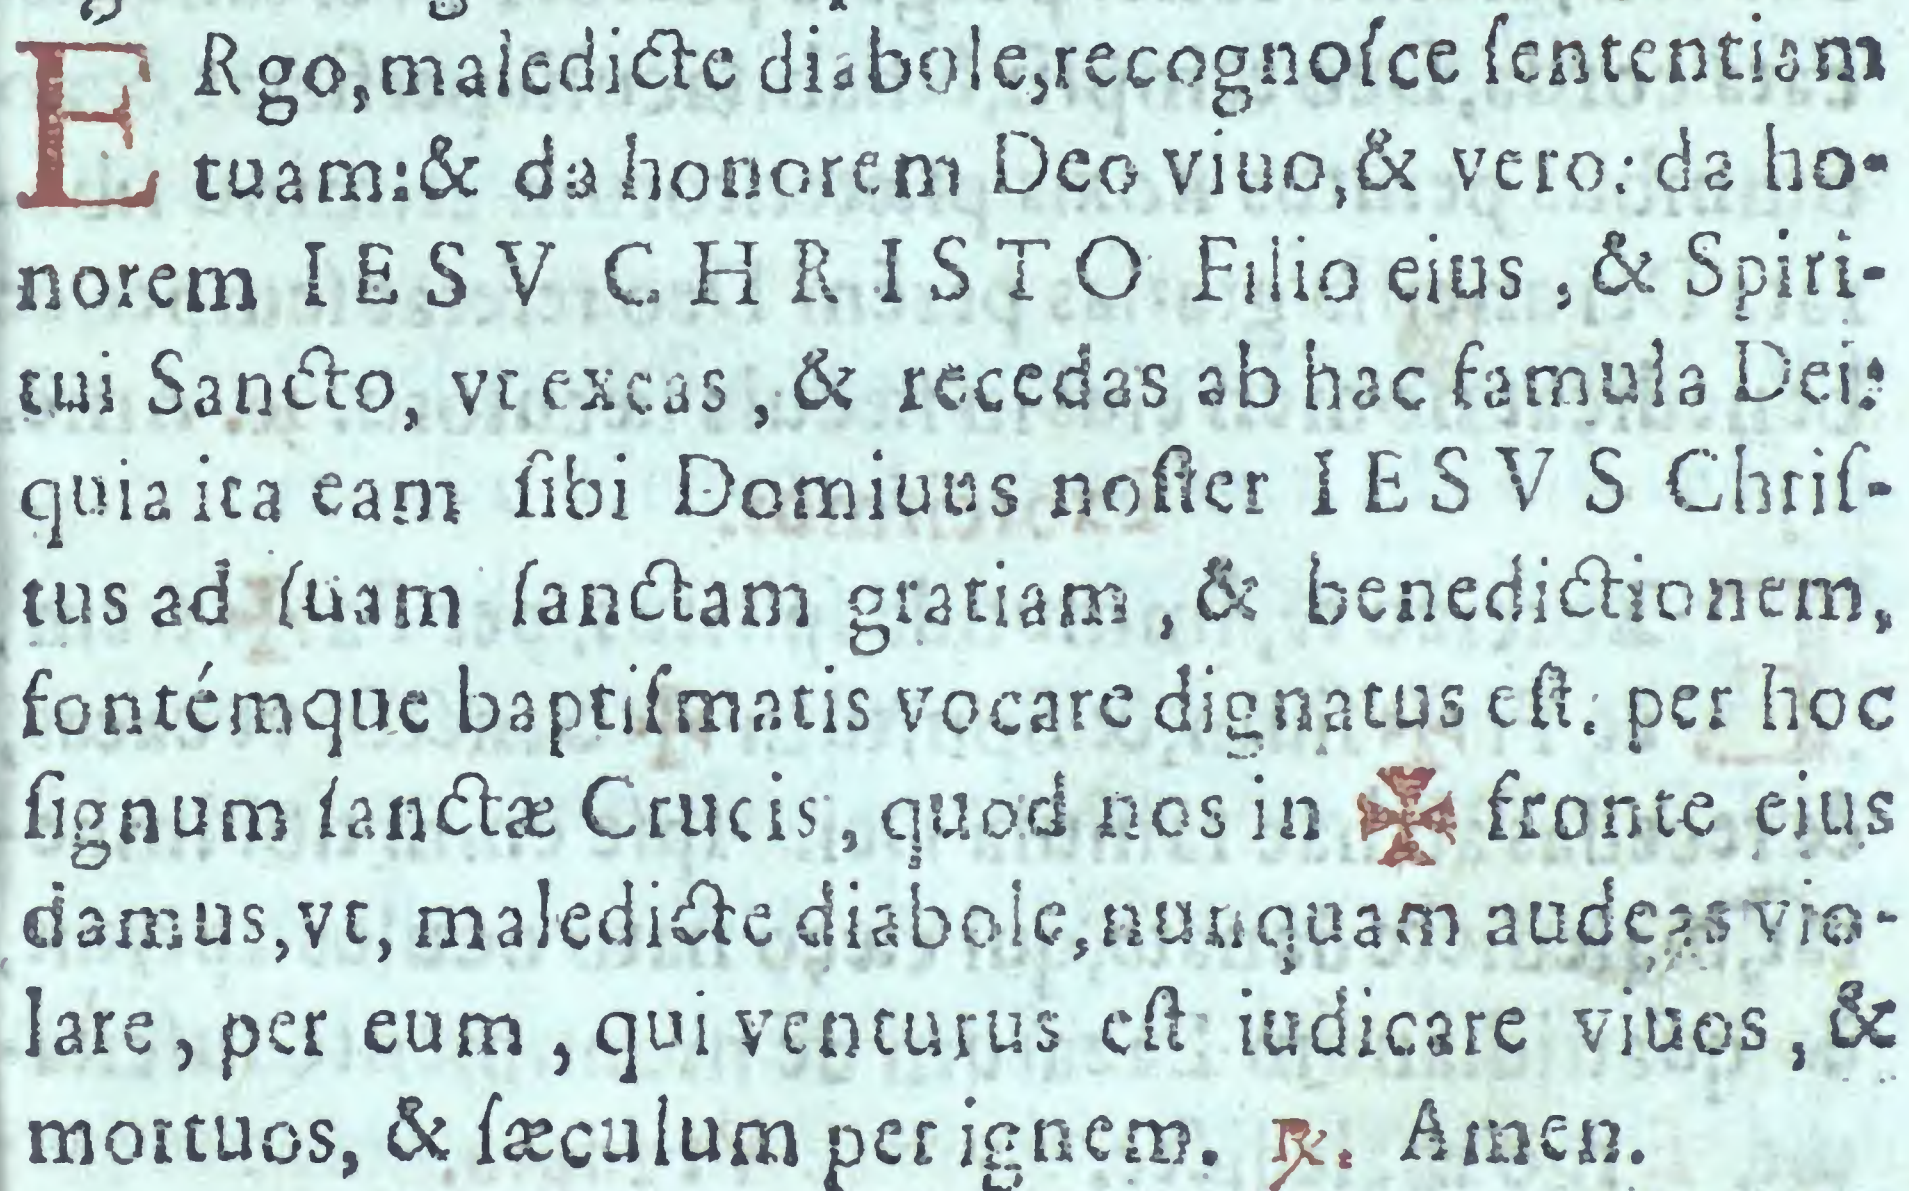 ERgo, maledicte diabole, recognoſce ſententiam
tuam: & da honorem Deo viuo, & vero: da ho-
norem IESV CHRISTO Filio eius, & Spiri-
tui Sancto, vt exeas, & recedas ab hac famula Dei:
quia ita eam ſibi Domiuus noſter IESVS Chriſ-
tus ad ſuam ſanctam gratiam, & benedictionem,
fontémque baptiſmatis vocare dignatus eſt: per hoc
ſignum ſanctæ Crucis, quod nos in ✠ fronte eius
damus, vt, maledicte diabole, nunquam audeas vio-
lare, per eum, qui venturus eſt iudicare viuos, &
mortuos, & ſæculum per ignem. ℞. Amen.